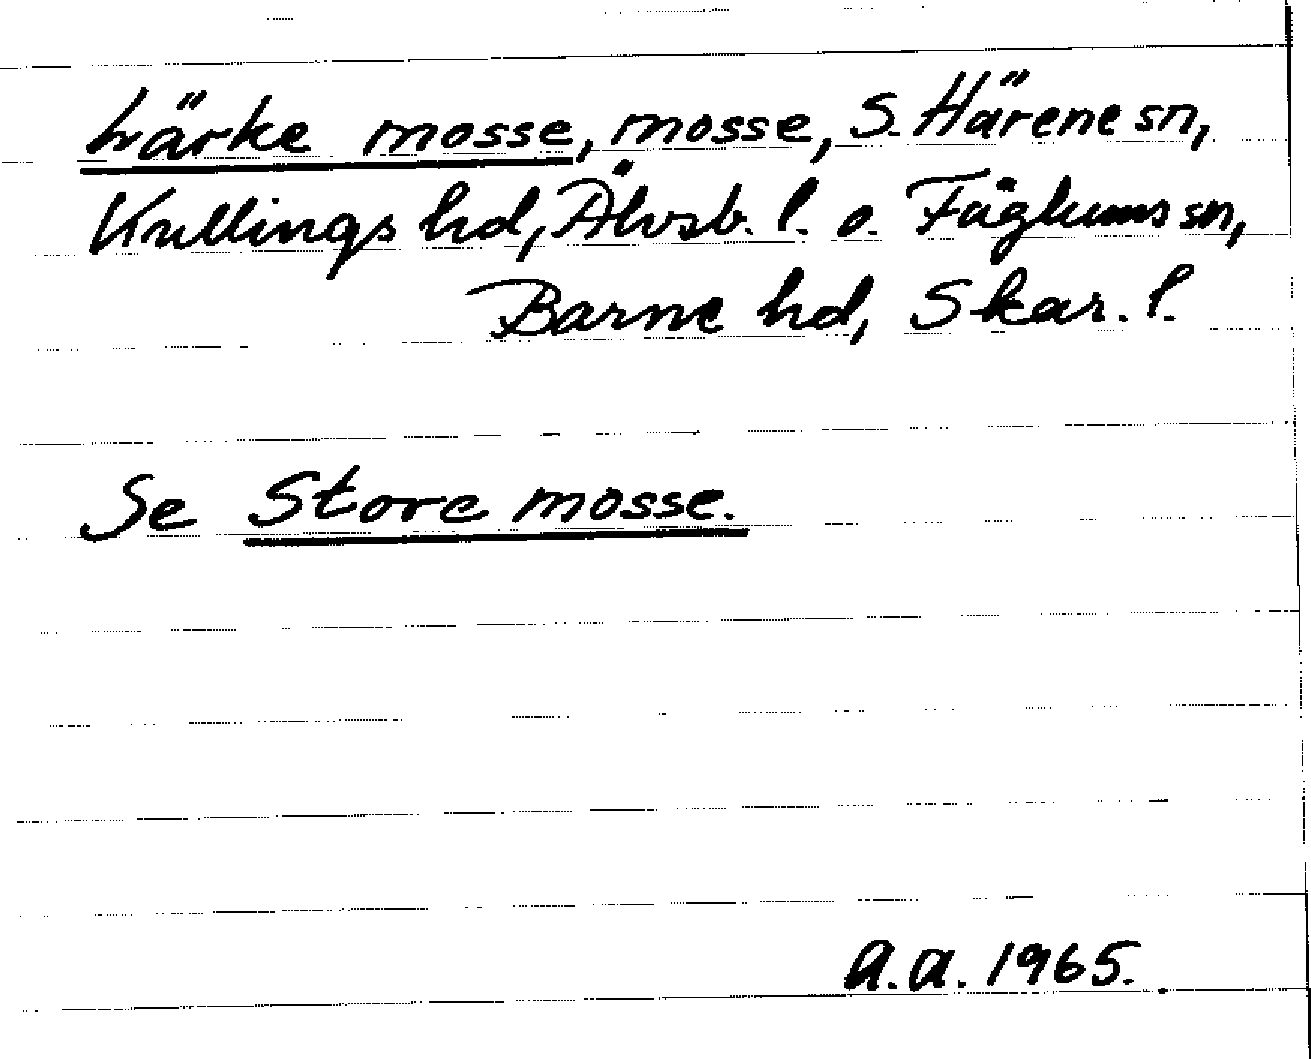 Lärke mosse, mosse, S. Härene sn,
Kullings hd, Älvsb. l. o. Fåglums sn,
Barne hd, Skar. l.
Se Store mosse.
A.A. 1965.